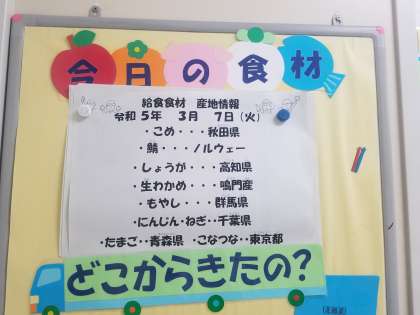 今日の食材
給食食材 産地情報
令和 5年 3月 7日(火)
・こめ・・・秋田県
・鯖・・・ノルウェー
・しょうが・・・高知県
・生わかめ・・・鳴門産
・もやし・・・群馬県
・にんじん・ねぎ・・千葉県
・たまご・・青森県 ・こなつな・・東京都
どこからきたの?